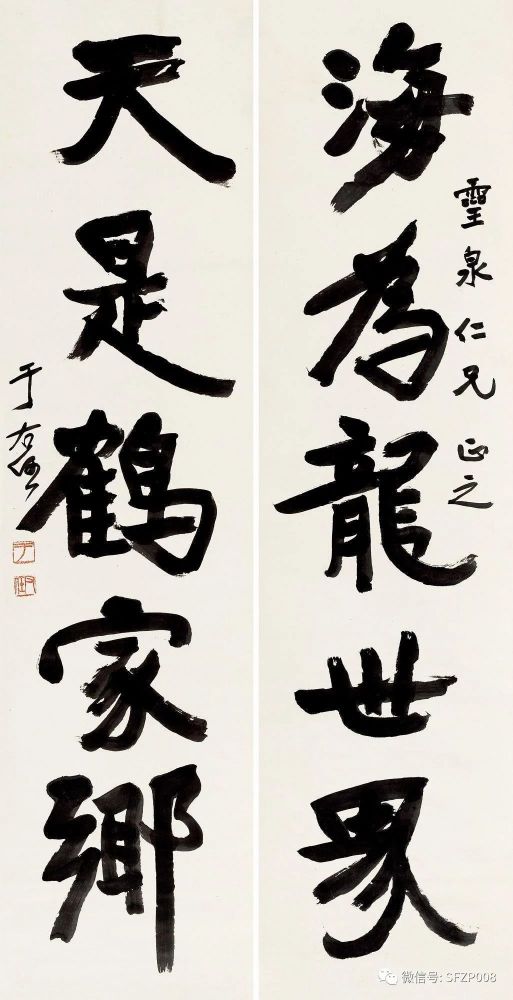 海為龍世界
靈泉仁兄 正之
天是鶴家鄉
于右任
微信号: SFZP008